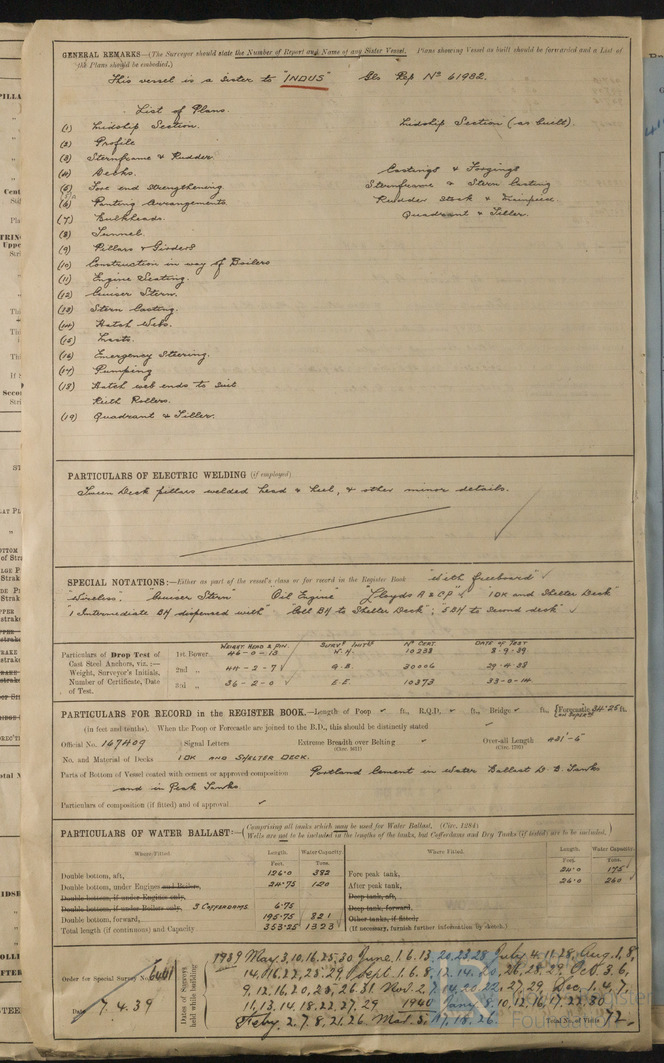 GENERAL REMARKS—(The Surveyor should state the Number of Report and Name of any Sister Vessel. Plans showing Vessel as built should be forwarded and a List of
the Plans should be embodied.)
This vessel is a sister to "INDUS" Gls Rep No 61982.
List of Plans.
(1) Midship Section. Midship Section (as built).
(2) Profile
(3) Sternframe & Rudder
(4) Decks. Castings & Forgings
(5) Fore end strengthening. Sternframe & Stern Casting
(6) Panting Arrangements. Rudder Stock &
(7) Bulkheads. Quadrant & Tiller.
(8) Tunnel.
(9) Pillars & Girders
(10) Construction in way of Boilers
(11) Engine Seating.
(12) Cruiser Stern.
(13) Stern Casting.
(14) Hatch Webs.
(15) Masts.
(16) Emergency Steering.
(17) Pumping
(18) Hatch web ends to suit
Keith Rollers.
(19) Quadrant & Tiller.
PARTICULARS OF ELECTRIC WELDING (if employed)
Tween Deck pillars welded head & heel, & other minor details.
SPECIAL NOTATIONS:—Either as part of the vessel's class or for record in the Register Book "With freeboard"
"Wireless". "Cruiser Stern" "Oil Engine" "Lloyds A & CP" "1 DK and Shelter Deck"
"1 Intermediate BH dispensed with" "Coll BH to Shelter Deck"; "5 BH to Second deck"
WEIGHT HEAD & PIN. SURVr INITLS No CERT. DATE OF TEST
Particulars of Drop Test of 1st Bower. 46-0-13 W.H. 10238 8-9-39
Cast Steel Anchors, viz.:— 2nd „ 44-2-7 G.B. 30006 29-4-38
Weight, Surveyor's Initials,
Number of Certificate, Date 3rd „ 36-2-0 E.E. 10373
of Test.
PARTICULARS FOR RECORD in the REGISTER BOOK.—Length of Poop ft., R.Q.D. ft., Bridge ft., Forecastle 34.25 ft.
(in feet and tenths). When the Poop or Forecastle are joined to the B.D., this should be distinctly stated
Official No. 167409 Signal Letters Extreme Breadth over Belting Over-all Length 421'-5"
(Circ. 1611) (Circ. 1703)
No. and Material of Decks 1 DK AND SHELTER DECK.
Parts of Bottom of Vessel coated with cement or approved composition Portland Cement in Water Ballast D.B. Tanks
and in Peak Tanks.
Particulars of composition (if fitted) and of approval
PARTICULARS OF WATER BALLAST:— (Comprising all tanks which may be used for Water Ballast. (Circ. 1284)
Wells are not to be included in the lengths of the tanks, but Cofferdams and Dry Tanks (if tested) are to be included.)
Where Fitted. Length. Water Capacity. Where Fitted. Length. Water Capacity.
Feet. Tons. Feet. Tons.
Double bottom, aft, 126.0 382 Fore peak tank, 24.0 175
Double bottom, under Engines and Boilers, 24.75 120 After peak tank, 26.0 260
Double bottom, if under Engines only, Deep tank, aft,
Double bottom, if under Boilers only, 3 COFFERDAMS 6.75 Deep tank, forward,
Double bottom, forward, 195.75 821 Other tanks, if fitted,
Total length (if continuous) and Capacity 353.25 1323 (If necessary, furnish further information by sketch.)
Order for Special Survey No. 6461
Date 7.4.39
Dates of Surveys held while building
1939 May 3,10,16,25,30 June 1,6,13,20,23,28 July 4,11,28, Aug. 1,8,
14,16,22,25,29 Sept. 1,6,8,12,14,20,26,28,29 Oct. 3,6,
9,12,16,20,23,26,31 Nov. 2,7,14,20,22,27,29, Dec. 1,4,7,
11,13,14,18,22,27,29 1940 Jany 8,10,12,16,17,22,30
Feby. 2,7,8,21,26 Mar. 5,17,18,26.
Total No. of Visits 72